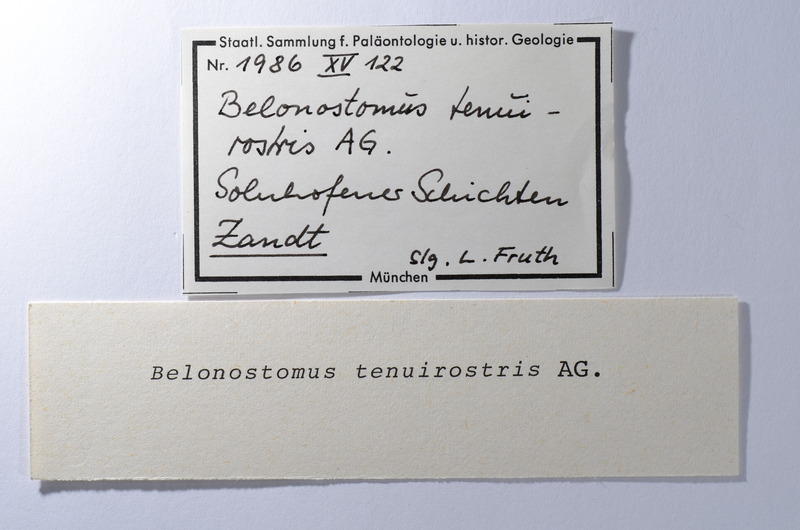 Staatl. Sammlung f. Paläontologie u. histor. Geologie
Nr. 1986 XV 122
Belonostomus tenui-
rostris AG.
Solnhofener Schichten
Zandt
Slg. L. Fruth
München
Belonostomus tenuirostris AG.